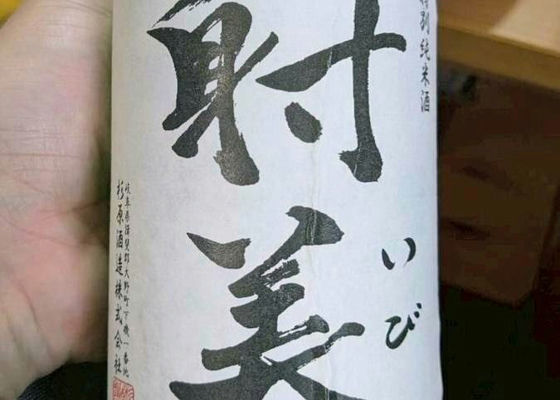 特別純米酒
射美
いび
岐阜県揖斐郡大野町下磯一番地
杉原酒造株式会社